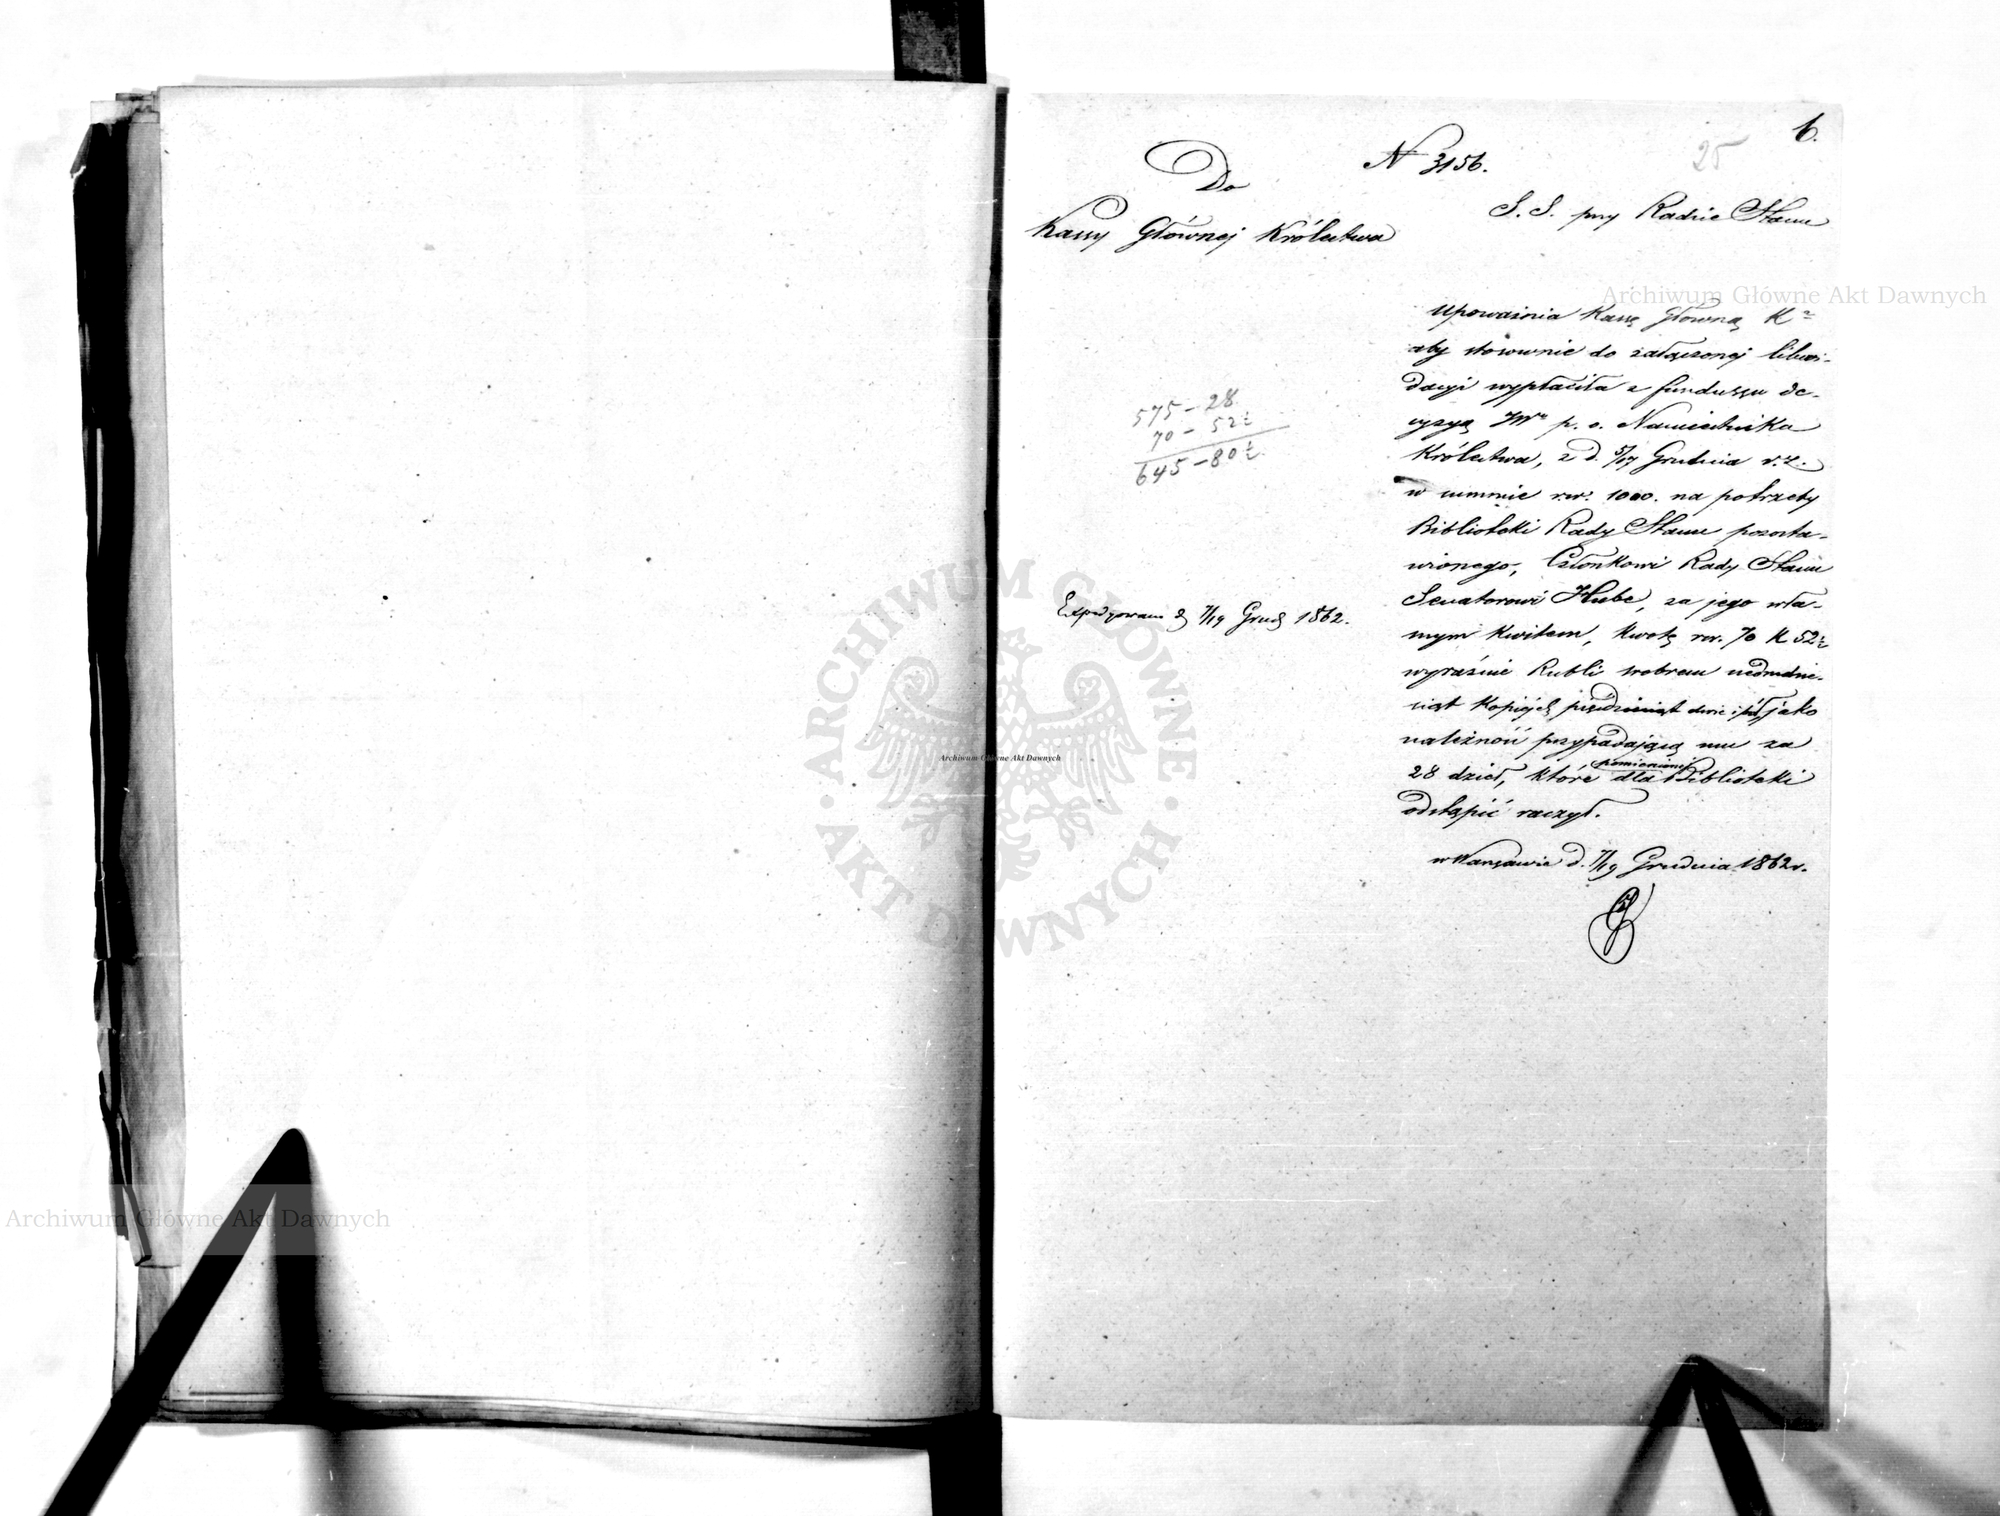 6.
25
N 3156.
Do
Kassy Głównej Królestwa
S. S. przy Radzie Stanu
Upoważnia Kassę Główną K
aby stosownie do załączonej likwi-
dacyi wypłaciła z funduszu de-
cyzyą p. o. Namiestnika
Królestwa, z d. 5/17 Grudnia r. z.
w summie rsr. 1000. na potrzeby
Biblioteki Rady Stanu pozosta-
wionego, Członkowi Rady Stanu
Senatorowi Hube, za jego wła-
snym kwitem, kwotę rsr. 70 K 52½
wyraźnie Rubli srebrem siedmdzie-
siąt kopiejek pięćdziesiąt dwie i pół, jako
należność przypadającą mu za
28 dzieł, które dla pomienionej Biblioteki
odstąpić raczył.
w Warszawie d. 7/19 Grudnia 1862 r.
575 - 28
70 - 52½
645 - 80½
Expedyowano d 7/19 Grud 1862.
Archiwum Główne Akt Dawnych
ARCHIWUM GŁÓWNE
AKT DAWNYCH
Archiwum Główne Akt Dawnych
Archiwum Główne Akt Dawnych